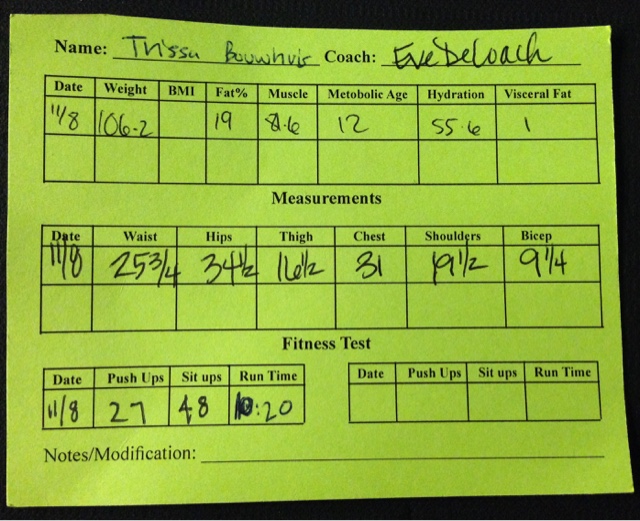 Name: Trissa Bouwhuis Coach: Eve DeLoach
Date Weight BMI Fat% Muscle Metobolic Age Hydration Visceral Fat
11/8 106.2 19 12 55.6 1
Measurements
Date Waist Hips Thigh Chest Shoulders Bicep
11/8 25 3/4 34 1/2 16 1/2 31 19 1/2 9 1/4
Fitness Test
Date Push Ups Sit ups Run Time Date Push Ups Sit ups Run Time
11/8 27 48 10:20
Notes/Modification: